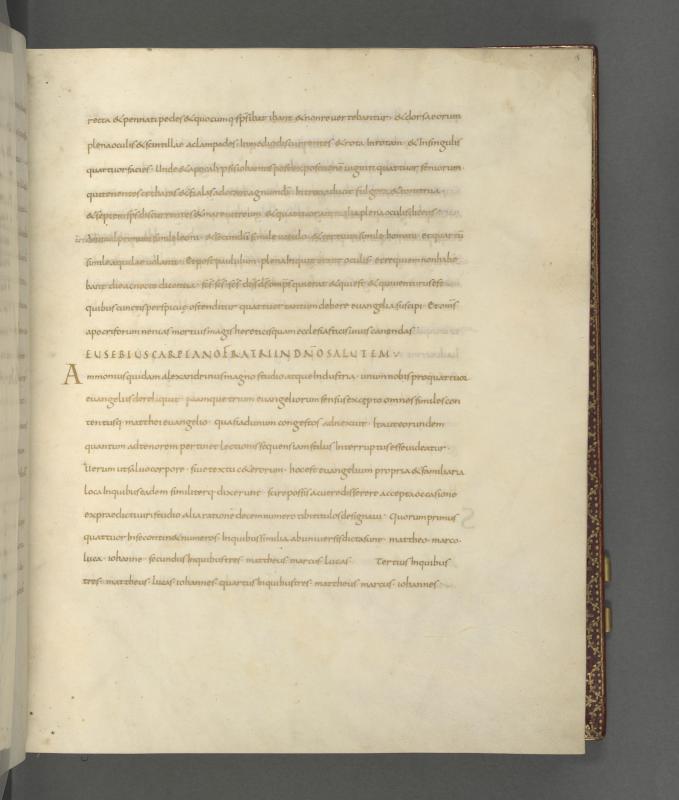 recta & pennati pedes & quocumq; sps ibat ibant & non revertebantur · & dorsa eorum
plena oculis & scintillae ac lampades · In medio discurrentes · & rota In rotam · & In singulis
quattuor facies · Unde & apocalypsis iohannis post expositionē viginti quattuor seniorum ·
qui tenentes citharas & fialas adorant agnum dī · Introducit fulgora & tonitrua ·
& septem sps discurrentes & mare vitreum · & quattuor animalia plena oculis
simile leoni · & secundū simile vitulo · & tertium simile homini · et quartū
simile aquilae volanti · Et post paululum · plena Inquit erant oculis · & requiem non habe
bant die ac nocte dicentia · scs scs scs dns ds omps qui erat & qui est & qui venturus est
quibus cunctis perspicuę ostenditur quattuor tantum debere evangelia suscipi · Et omīs
apocriforum nenias mortuis magis hereticis quam ecclesiasticis vivis canendas ·
EUSEBIUS CARPIANO FRATRI IN DNO SALUTEM
Ammonius quidam alexandrinus magno studio atque Industria · unum nobis pro quattuor
evangeliis dereliquit · Namque trium evangeliorum sensus excepto omnes similes con
tentusq; matthei evangelio · quasi ad unum congestos adnexuit · Ita ut eorundem
quantum ad tenorem pertinet lectionis sequens iam stilus Interruptus esse videatur ·
Uerum ut salvo corpore · sive textu c&erorum · hoc est evangelium propria & familiaria
loca In quibus eadem similiterq; dixerunt · scire possis ac vere disserere accepta occasione
ex praedicti viri studio alia ratione decem numero tibi titulos designavi · Quorum primus
quattuor In se contin& numeros · In quibus similia ab universis dicta sunt · mattheo · marco ·
luca · iohanne · secundus In quibus tres · mattheus marcus lucas · Tertius In quibus
tres · mattheus · lucas iohannes · quartus In quibus tres · mattheus marcus · iohannes ·